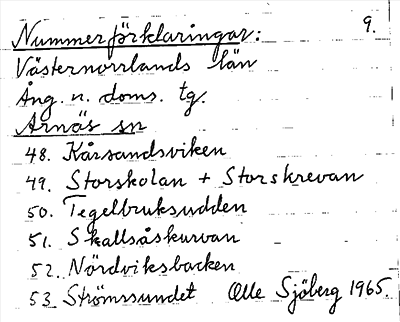 Nummerförklaringar: 9.
Västernorrlands län
Ång. n. doms. tg.
Arnäs sn
48. Kårsandsviken
49. Storskolan + Storskrevan
50. Tegelbruksudden
51. Skallsåskurvan
52. Nördviksbacken
53 Strömssundet Olle Sjöberg 1965.